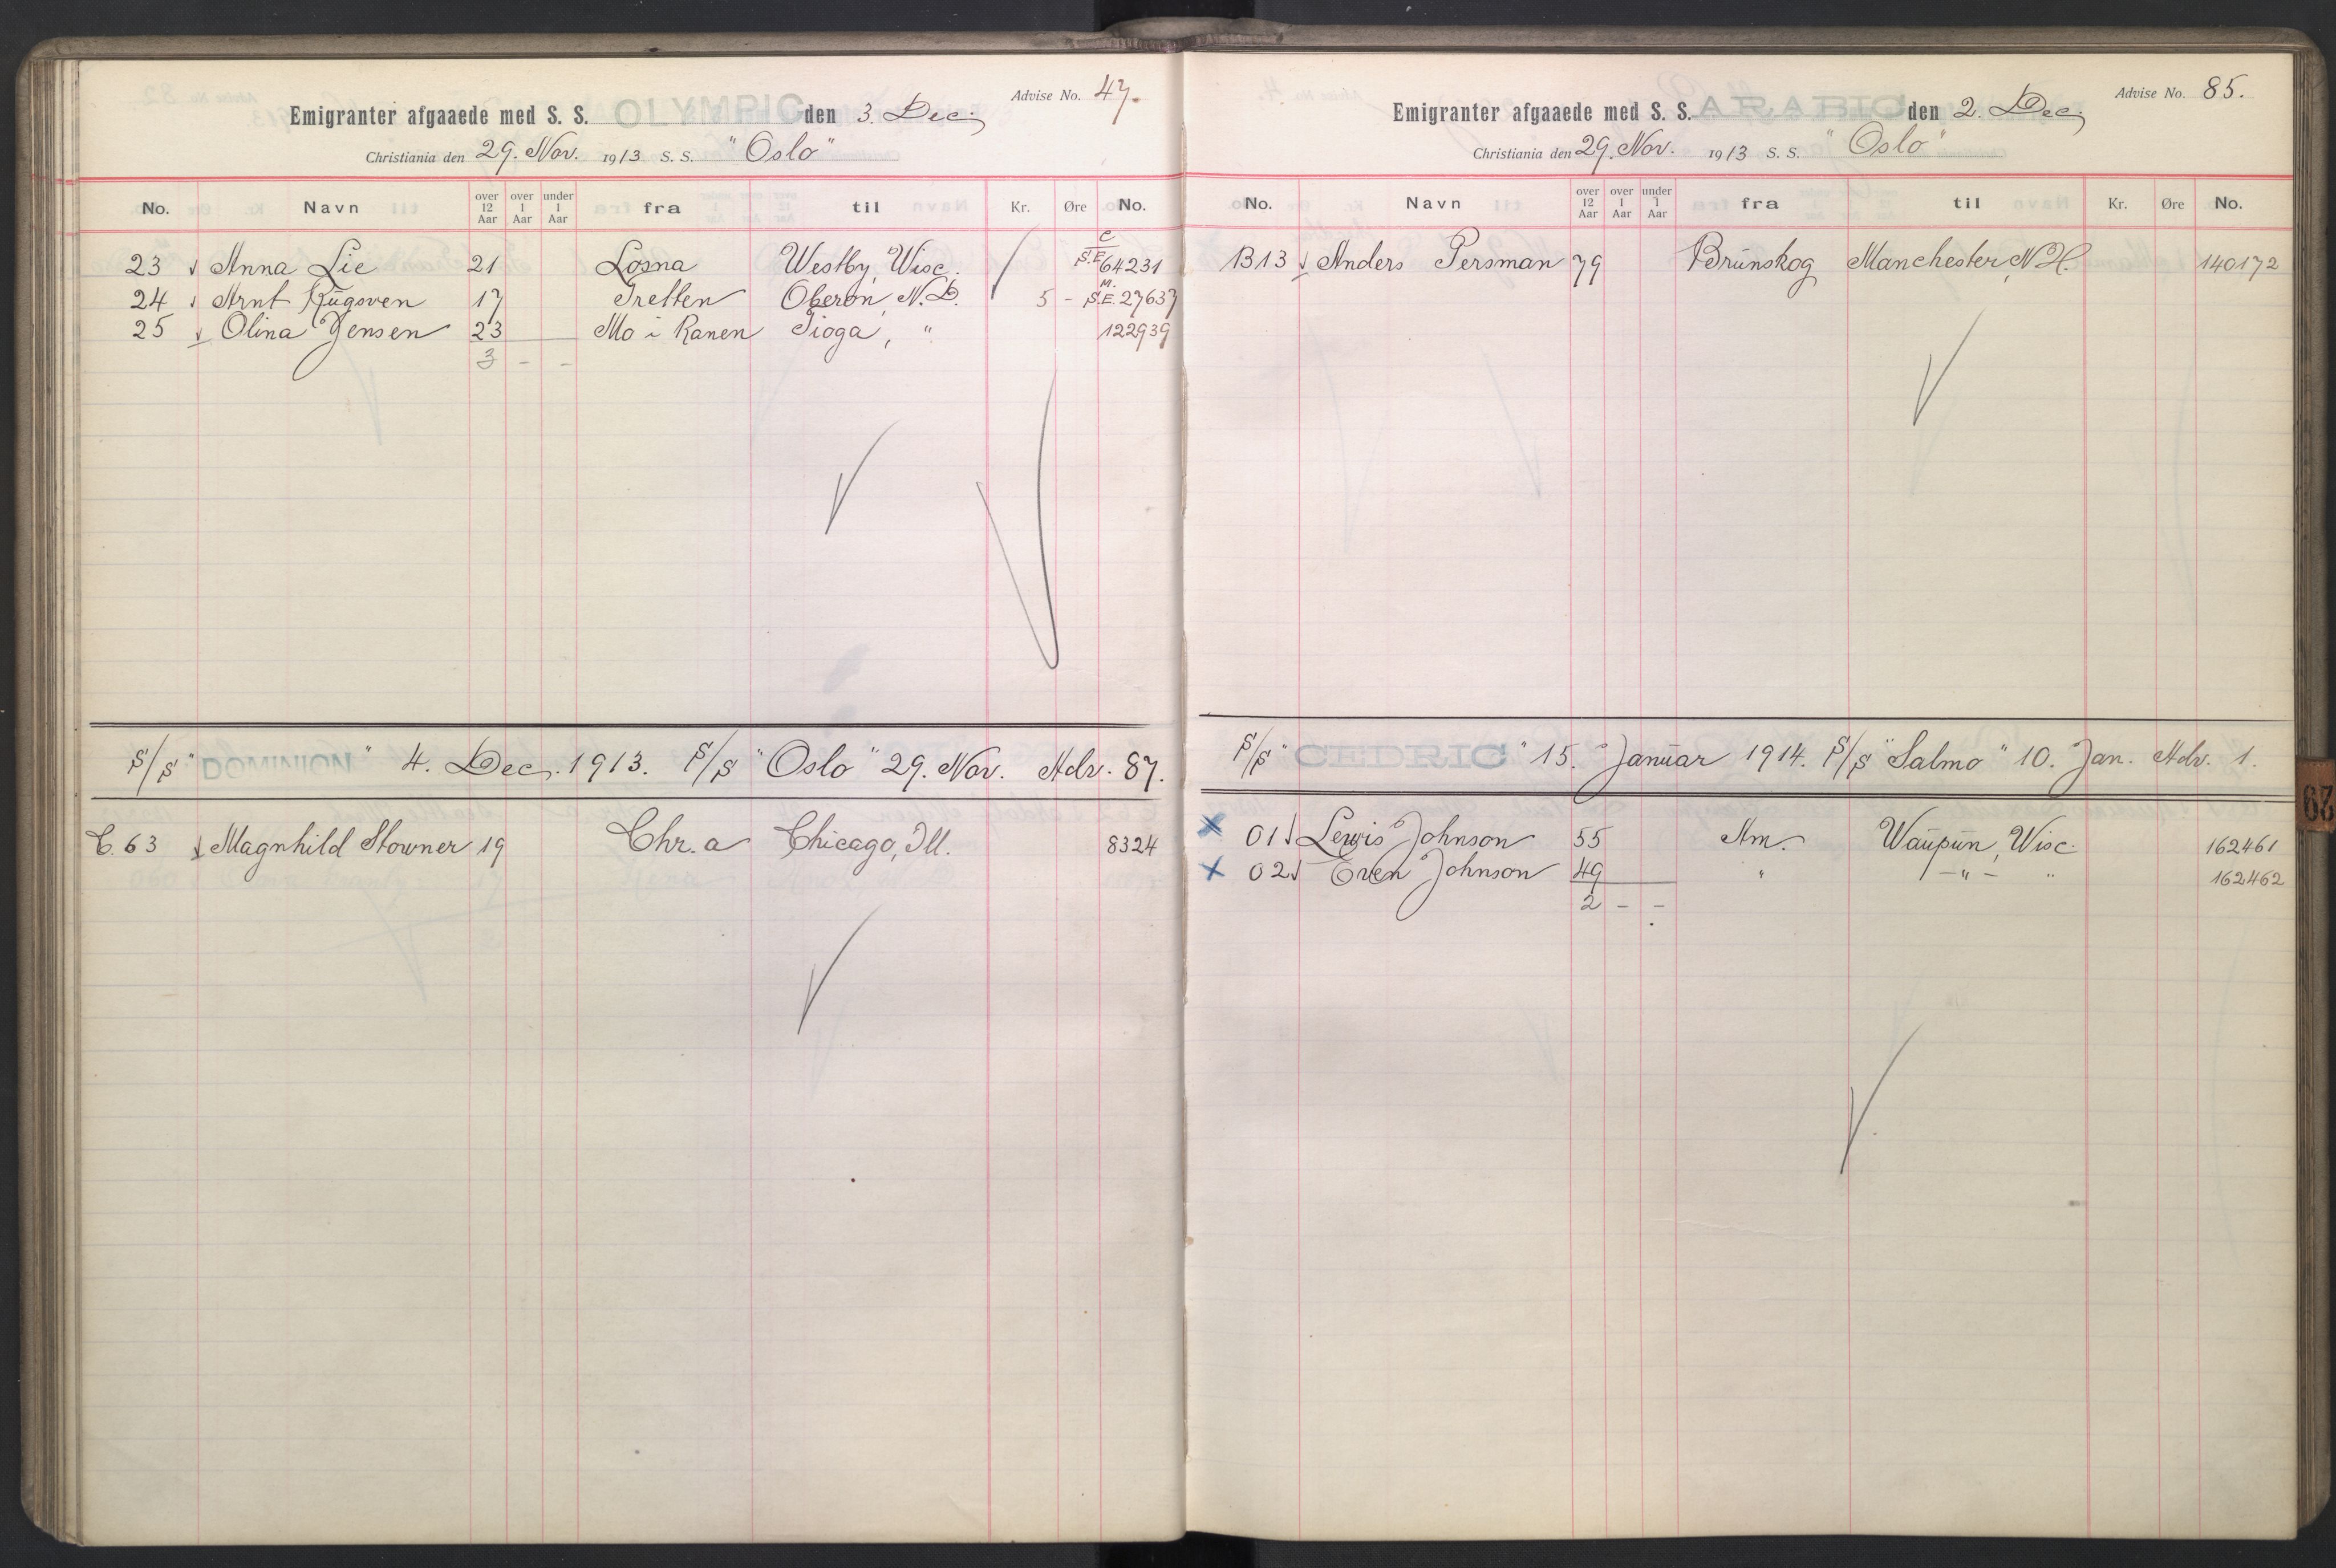 Advise No. 47.
Emigranter afgaaede med S. S. OLYMPIC den 3. Dec.
Christiania den 29. Nov. 1913 S. S. "Oslo"
No. Navn over 12 Aar over 1 Aar under 1 Aar fra til Kr. Øre No.
23 Anna Lie 21 Losna Westby, Wisc. C S.E. 64231
24 Arnt Rugsven 17 Tretten Oberon, N.D. 5 - M. S.E. 27637
25 Olina Jensen 23 Mo i Ranen Tioga, " 122939
3 - -
S/S "DOMINION" 4. Dec. 1913. S/S "Oslo" 29. Nov. Adv. 87.
C. 63 Magnhild Stowner 19 Chr.a Chicago, Ill. 8324
Advise No. 85.
Emigranter afgaaede med S. S. ARABIC den 2. Dec.
Christiania den 29. Nov. 1913 S. S. "Oslo"
No. Navn over 12 Aar over 1 Aar under 1 Aar fra til Kr. Øre No.
B13 Anders Persman 79 Brunskog Manchester, N.H. 140172
S/S "CEDRIC" 15. Januar 1914. S/S "Salmo" 10. Jan. Adv. 1.
X 01 Lewis Johnson 55 Am. Waupun, Wisc. 162461
X 02 Even Johnson 49 " -"- " 162462
2 - -